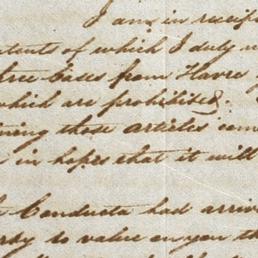 I am in receip
ntents of which I duly n
three Cases from Havre
which are prohibited.
ning those articles com
in hopes that it will
Conducta had arriv
to value on you th